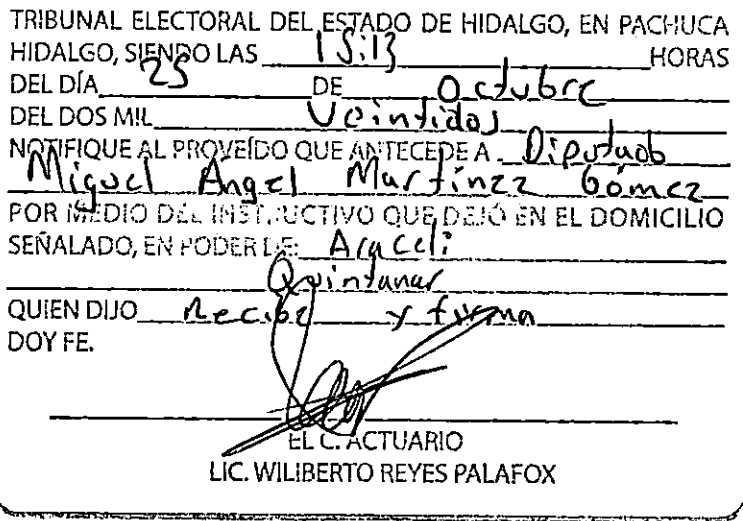 TRIBUNAL ELECTORAL DEL ESTADO DE HIDALGO, EN PACHUCA
HIDALGO, SIENDO LAS 15:13 HORAS
DEL DÍA 25 DE Octubre
DEL DOS MIL Veintidos
NOTIFIQUE AL PROVEÍDO QUE ANTECEDE A Diputado
Miguel Angel Martínez Gómez
POR MEDIO DEL INSTRUCTIVO QUE DEJÓ EN EL DOMICILIO
SEÑALADO, EN PODER DE: Araceli
Quintanar
QUIEN DIJO Recibe y firma
DOY FE.
EL C. ACTUARIO
LIC. WILIBERTO REYES PALAFOX